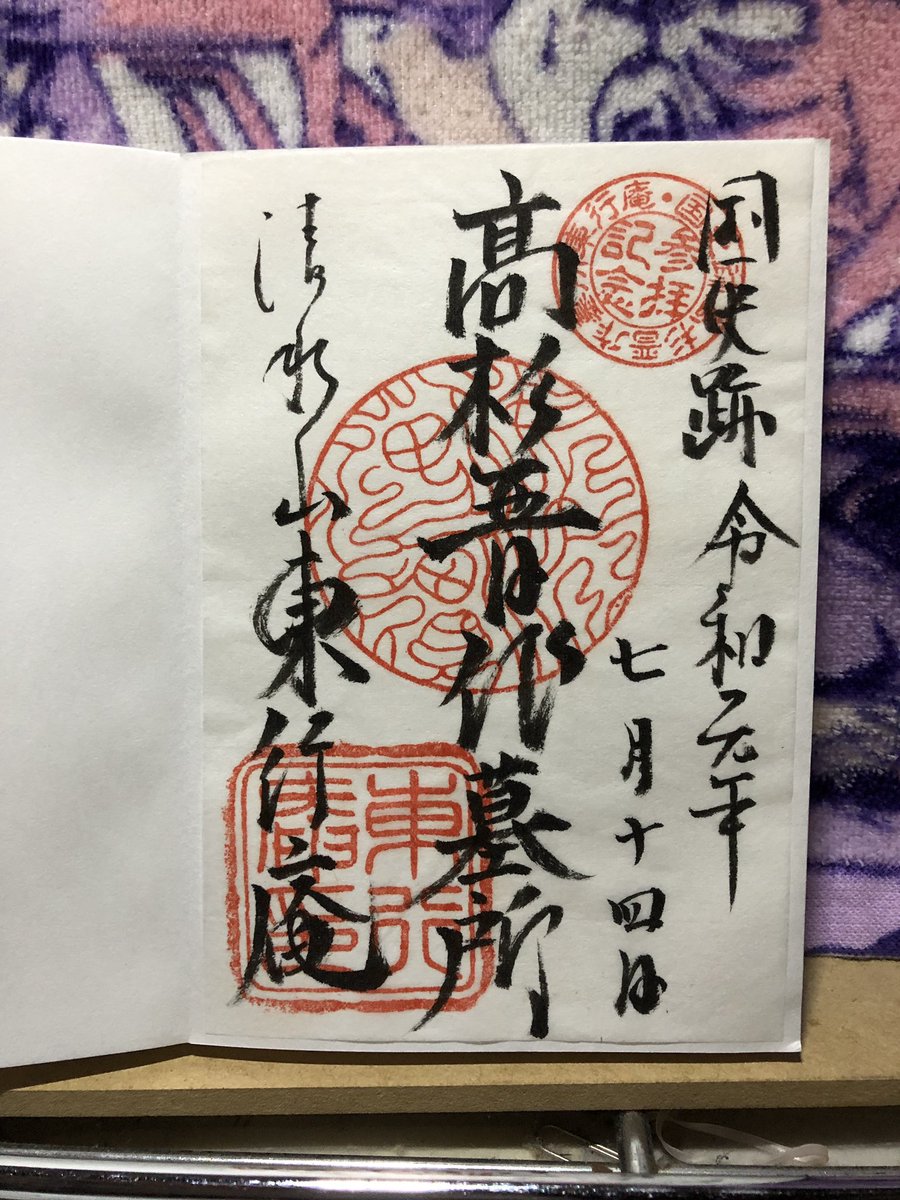 国史跡 令和元年
七月十四日
高杉晋作墓所
清水山東行庵
参拝
記念
東行